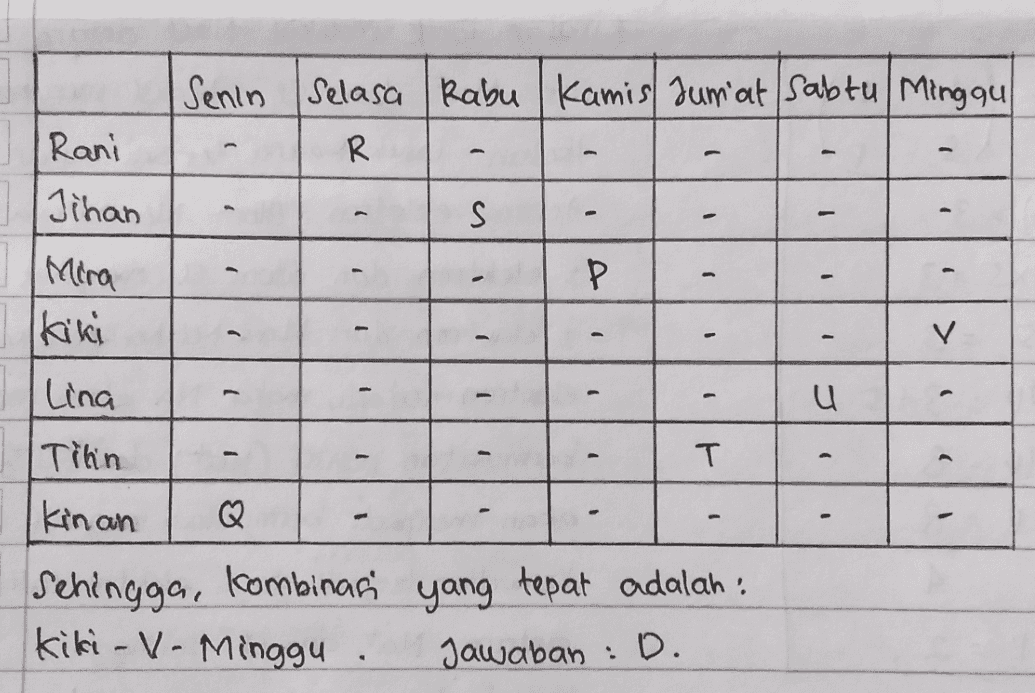 Senin Selasa Rabu Kamis Jum'at Sabtu Minggu
Rani - R - - - - -
Jihan - - S - - - -
Mira - - - P - - -
Kiki - - - - - - V
Lina - - - - - U -
Titin - - - - T - -
Kinan Q - - - - - -
Sehingga, kombinasi yang tepat adalah :
Kiki - V - Minggu . Jawaban : D.